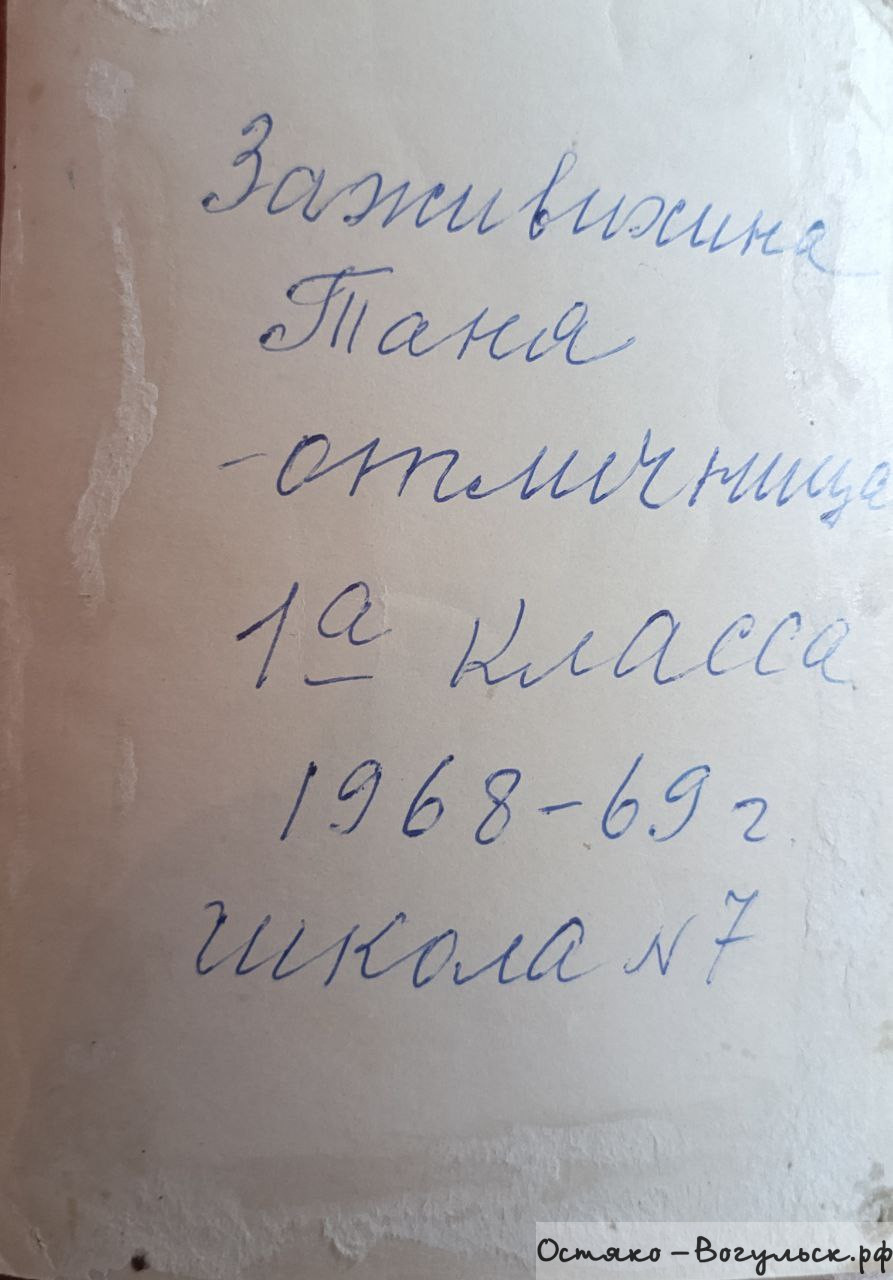 Заживихина
Таня
- отличница
1а класса
1968-69 г
школа N 7
Остяко-Вогульск.рф